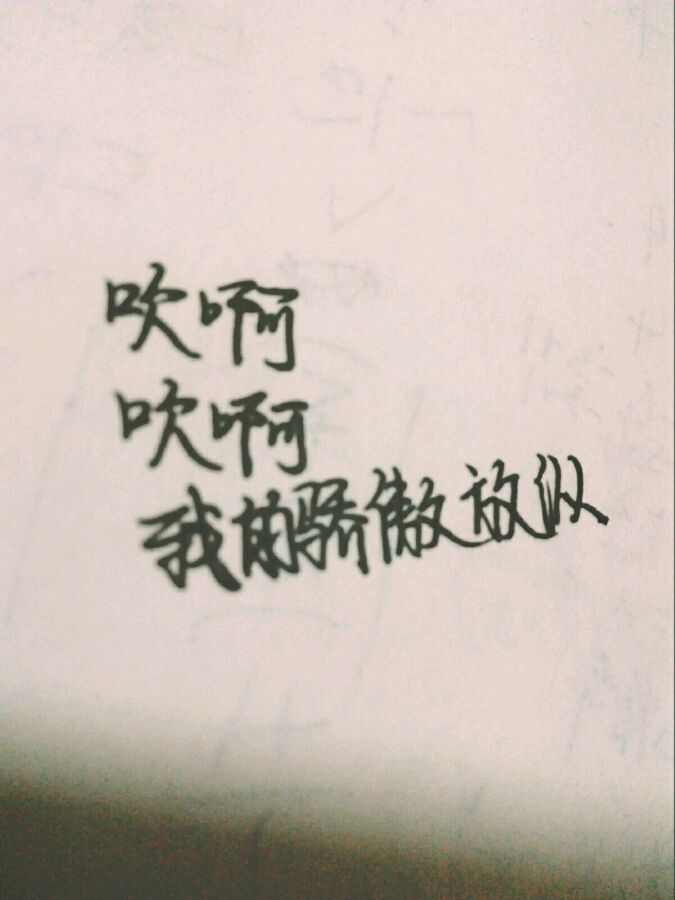 吹啊
吹啊
我的骄傲放纵